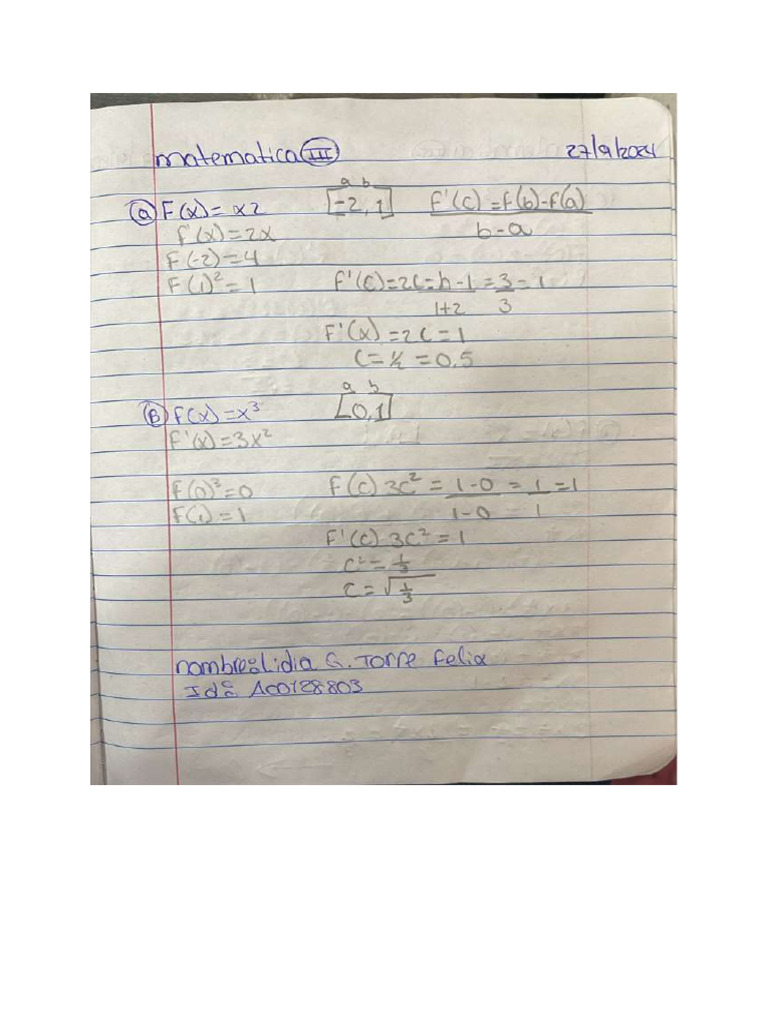 matematica III 27/9/2024
a b
(a) F(x) = x2 [-2, 1] f'(c) = f(b)-f(a)
f'(x) = 2x b-a
F(-2) = 4
F(1)² = 1 F'(c) = 2c = h-1 = 3 = 1
1+2 3
F'(x) = 2c = 1
c = ½ = 0.5
a b
(B) f(x) = x³ [0,1]
f'(x) = 3x²
f(0)³ = 0 f(c) 3c² = 1-0 = 1 = 1
f(1) = 1 1-0 1
F'(c) 3c² = 1
c² = 1/3
c = √1/3
nombre: Lidia G. Torre Felix
Id: A00128803